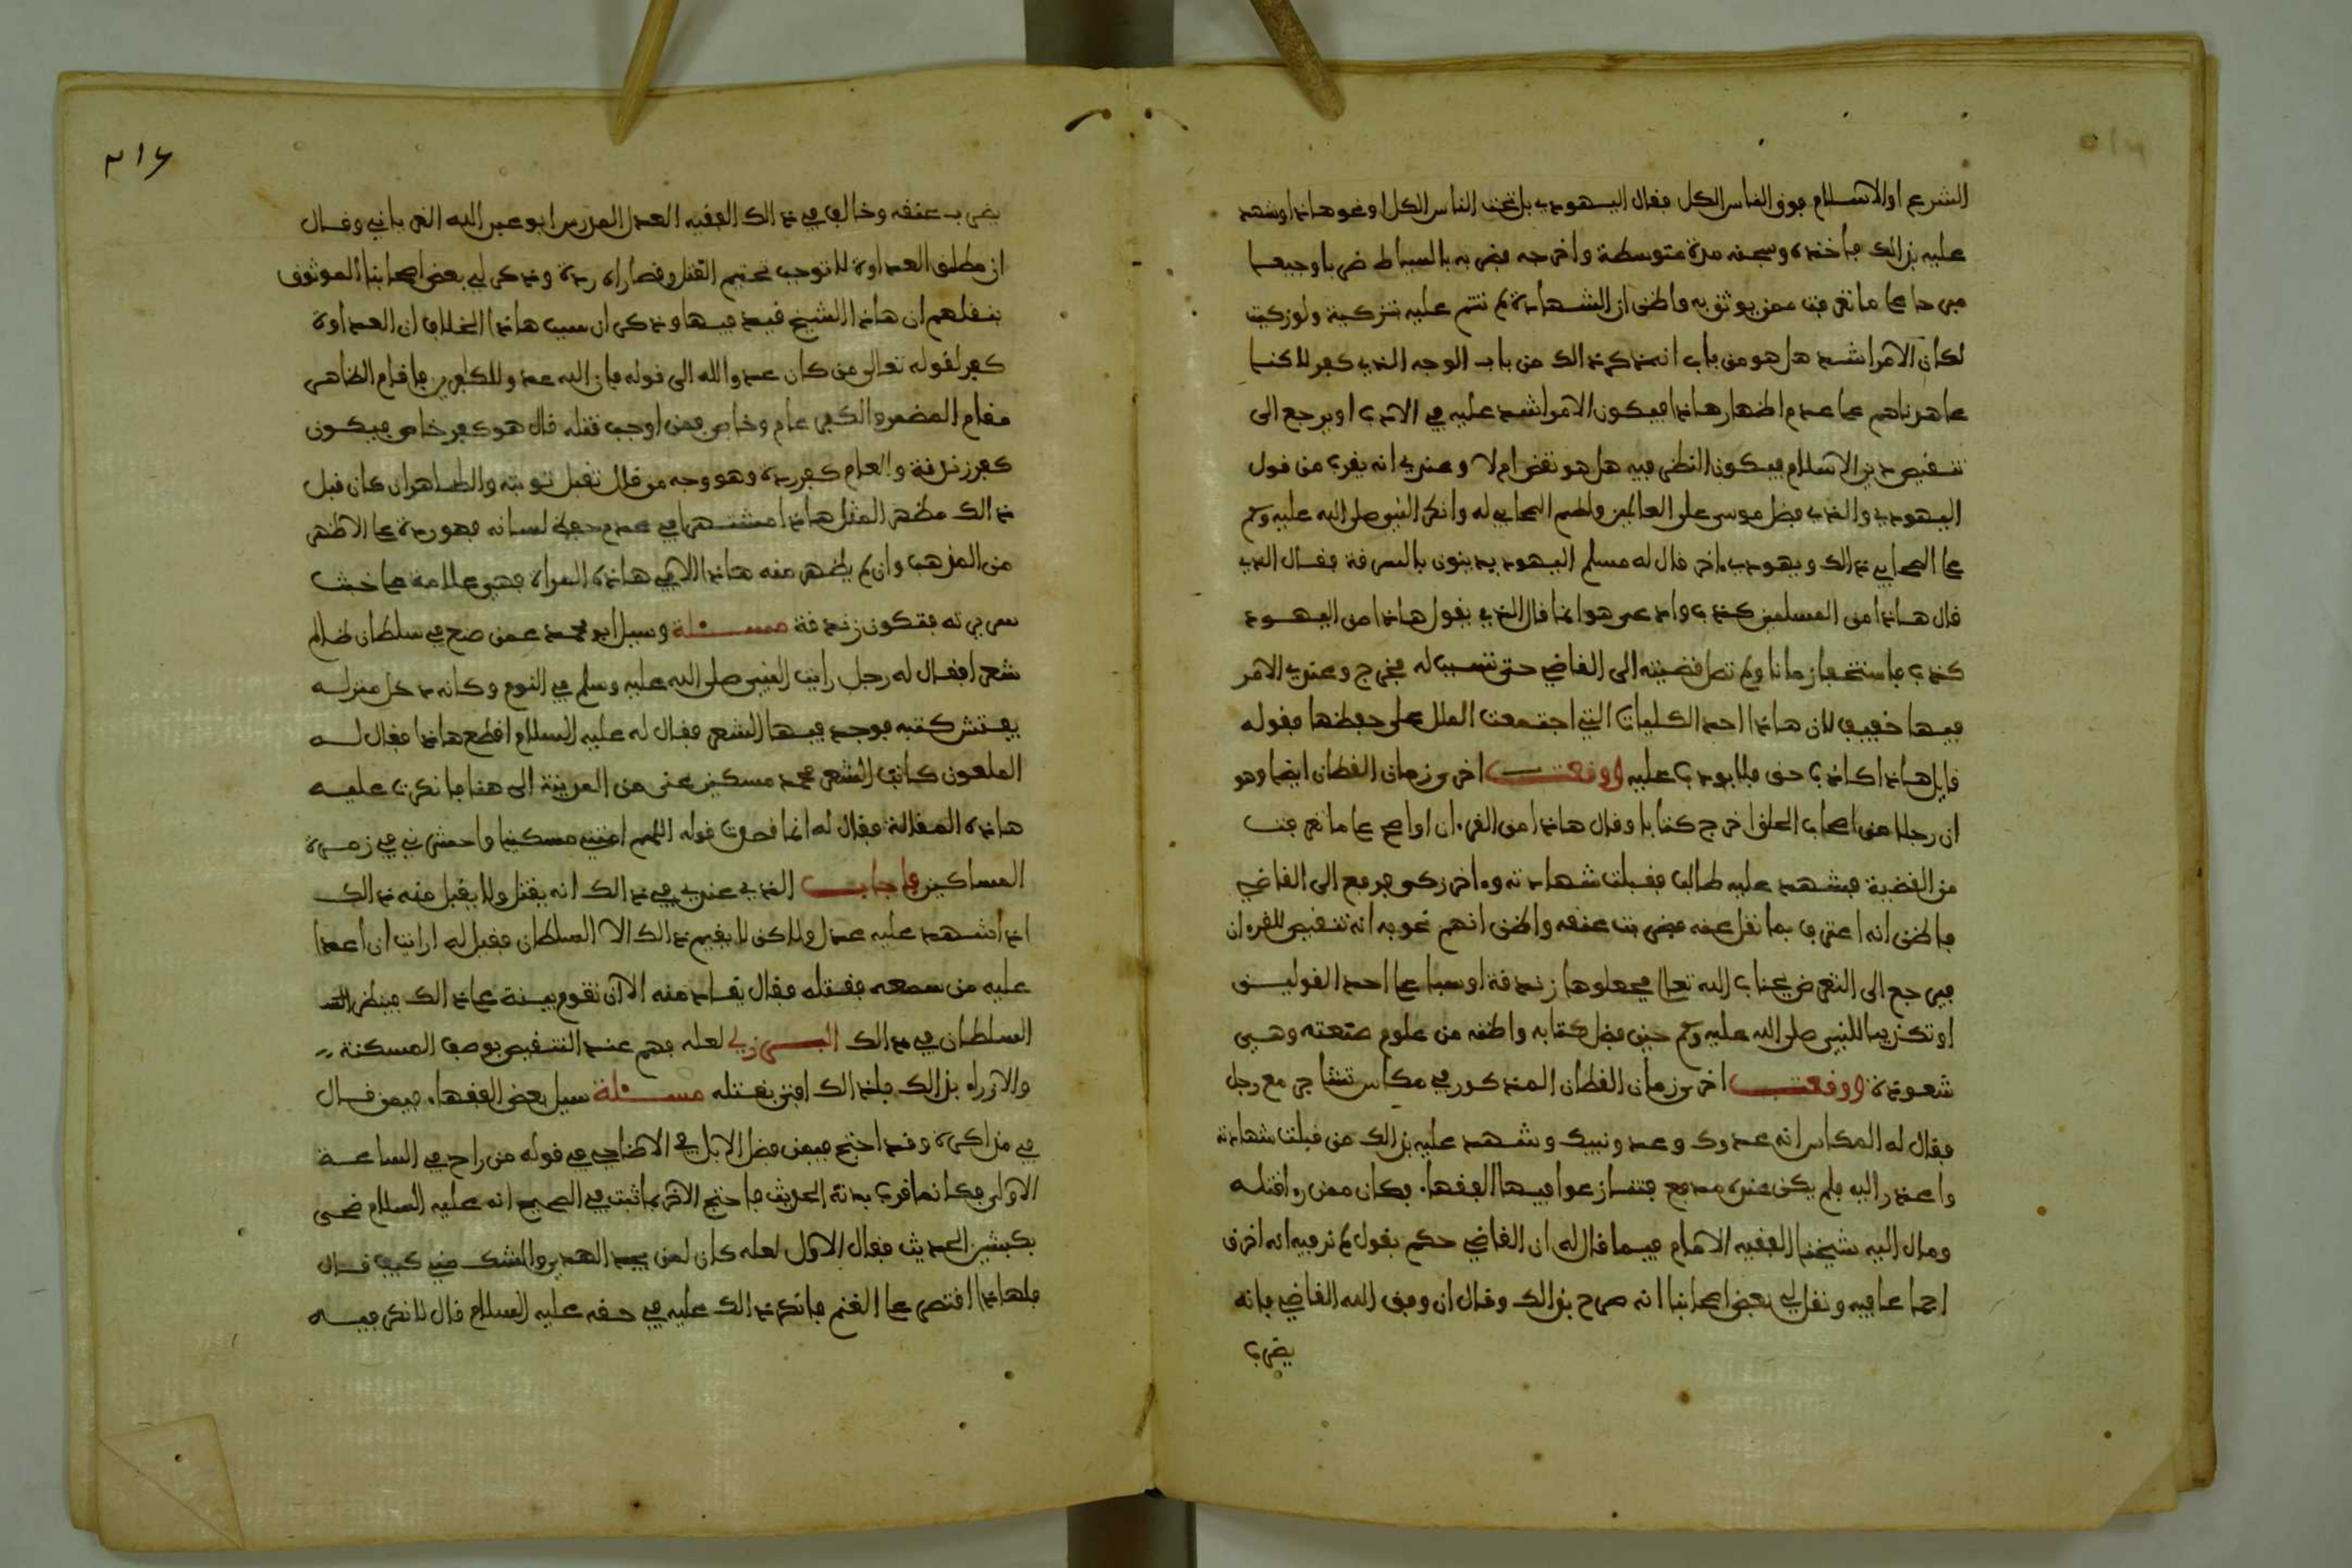 الشرع او الاسلام فوق الناس الكل فقال اليهودي بل تحت الناس الكل او نحو هاذا وشهد
عليه بذالك فاخذه وسجنه مدة متوسطة واخرجه فضربه بالسياط ضربا وجيعا
على ما تعرفت ممن يوثق به واظن ان الشهادة لم تتم عليه بتزكية ولو زكيت
لكان الامر اشد هل هو من باب انه ذكر ذالك من باب الوجه الذي كفر للاكنا
عاهدناهم على عدم اظهار هاذا فيكون الامر اشد عليه في الادب او يرجع الى
تنقيص دين الاسلام فيكون النظر فيه هل هو نقض ام لا وعندي انه يقرب من قول
اليهودي والذي فضل موسى على العالمين ولطم الصحابي له وانكر النبي صلى الله عليه وسلم
على الصحابي ذالك ويهودي ماخر قال له مسلم اليهود يدينون بالسرقة فقال الذي
قال هاذا من المسلمين كذب وادعى هو انما قال الذي يقول هاذا من اليهود
كذب فاستخفا زمانا ولم تصل قضيته الى القاضي حتى تسبب له فخرج وعندي الامر
فيها خفيف لان هاذا احد الكليات التي اجتمعت الملل على حفظها فقوله
قايل هاذا كاذب حق فلا يودب عليه ووقعت اخرى زمان القطان ايضا وهو
ان رجلا من اصحاب الحلق اخرج كتابا وقال هاذا من القرءان او اصح على ما تعرفت
من القضية فشهد عليه طالب فقبلت شهادته وءاخر زكي فرفع الى القاضي
فاظن انه اعترف بما نقل عنه فضربت عنقه واظن انهم نحو به انه تنقيص للقرءان
فيرجع الى التعرض لجناب الله تعالى فجعلوها زندقة او سبا على احد القولين
او تكذيبا للنبي صلى الله عليه وسلم حين فضل كتابه واظنه من علوم صنعته وهي
شعوذة ووقعت اخرى زمان القطان المذكور في مكاس تشاجر مع رجل
فقال له المكاس انه عدوك وعدو نبيك وشهد عليه بذالك من قبلت شهادته
واعذر اليه فلم يكن عنده مدفع فتنازعوا فيها الفقهاء فكان ممن راى قتله
ومال اليه شيخنا الفقيه الامام فيما قال لي ان القاضي حكم بقول لم نر فيه انه اخرق
اجماعا فيه ونقل لي بعض اصحابنا انه صرح بذالك وقال ان وفق الله القاضي فانه
يضرب
٣١٦
يضرب عنقه وخالف في ذالك الفقيه العدل المدرس ابو عبد الله الغرياني وقال
ان مطلق العداوة لا توجب تحتيم القتل وقصاراه ردة وذكر لي بعض اصحابنا الموثوق
بنقلهم ان هاذا الشيخ قيد فيها وذكر ان سبب هاذا الخلاف ان العداوة
كفر لقوله تعالى من كان عدوا لله الى قوله فان الله عدو للكافرين فاقام الظاهر
مقام المضمر والكفر عام وخاص فمن اوجب قتله قال هو كفر خاص فيكون
كفر زندقة والعام كفر ردة وهو وجه من قال تقبل توبته والظاهر ان كان قبل
ذالك مظهرا لمثل هاذا مشتهرا في عدم حفظ لسانه فهو ردة على الاظهر
من المذهب وان لم يظهر منه هاذا الا في هاذه المرة فهي علامة على خبث
سريرته فتكون زندقة مسئلة وسيل ابو محمد عمن صح في سلطان ظالم
شعرا فقال له رجل رايت النبي صلى الله عليه وسلم في النوم وكانه دخل منزله
يفتش كتبه فوجد فيها الشعر فقال له عليه السلام اقطع هاذا فقال له
الملعون كاتب الشعر محمد مسكين عنى من المدينة الى هنا فانكرت عليه
هاذه المقالة فقال له انما قصدت قوله اللهم امتني مسكينا واحشرني في زمرة
المساكين فاجاب الذي عندي في ذالك انه يقتل ولا يقبل منه ذالك
اذا شهد عليه عدل وللكن لا يقيم ذالك الا السلطان فقيل له ارايت ان اعدا
عليه من سمعه فقتله فقال يقاد منه الا ان تقوم بينة على ذالك فينظر
السلطان في ذالك البرزلي لعله فهم عند التنقيص بوصف المسكنة
والازراء بذالك فلذالك افتى بقتله مسئلة سيل بعض الفقهاء فيمن قال
في مذاكرة وقد احتج فيمن فضل الابل في الاضاحي في قوله من راح في الساعة
الاولى فكانما قرب بدنة الحديث فاحتج الاخر بما ثبت في الصحيح انه عليه السلام ضحى
بكبشين الحديث فقال الاول لعله كان لمن يجد الهدي والشك مني كيف قال
فلهاذا اقتصر على الغنم فانكر ذالك عليه في حقه عليه السلام قال لا نكر فيه